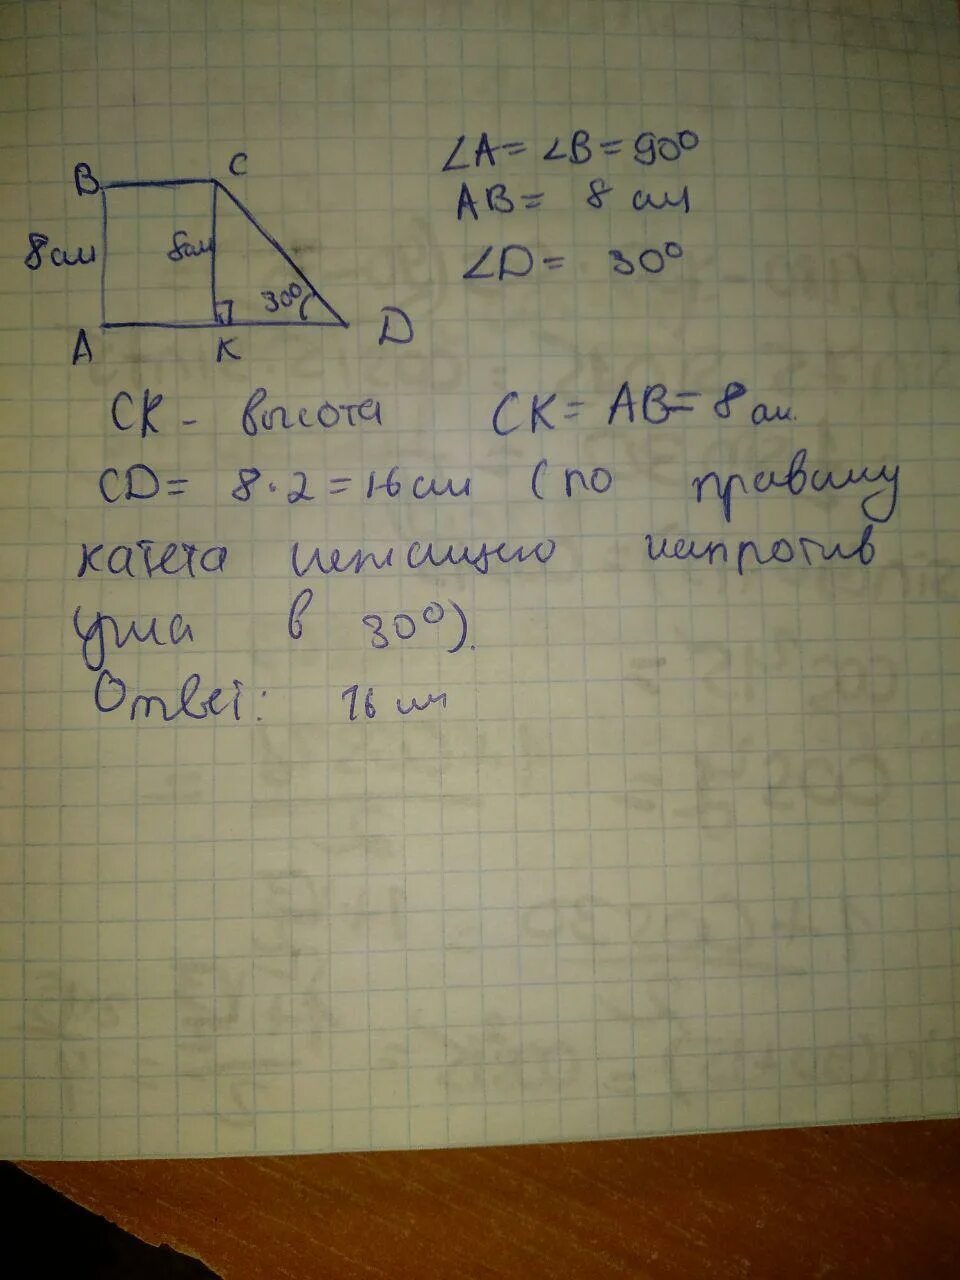 B C ∠A = ∠B = 90°
8 см 8см AB = 8 см
30° ∠D = 30°
A K D
CK - высота CK = AB = 8 см.
CD = 8 · 2 = 16 см (по правилу
катета лежащего напротив
угла в 30°).
Ответ: 16 см